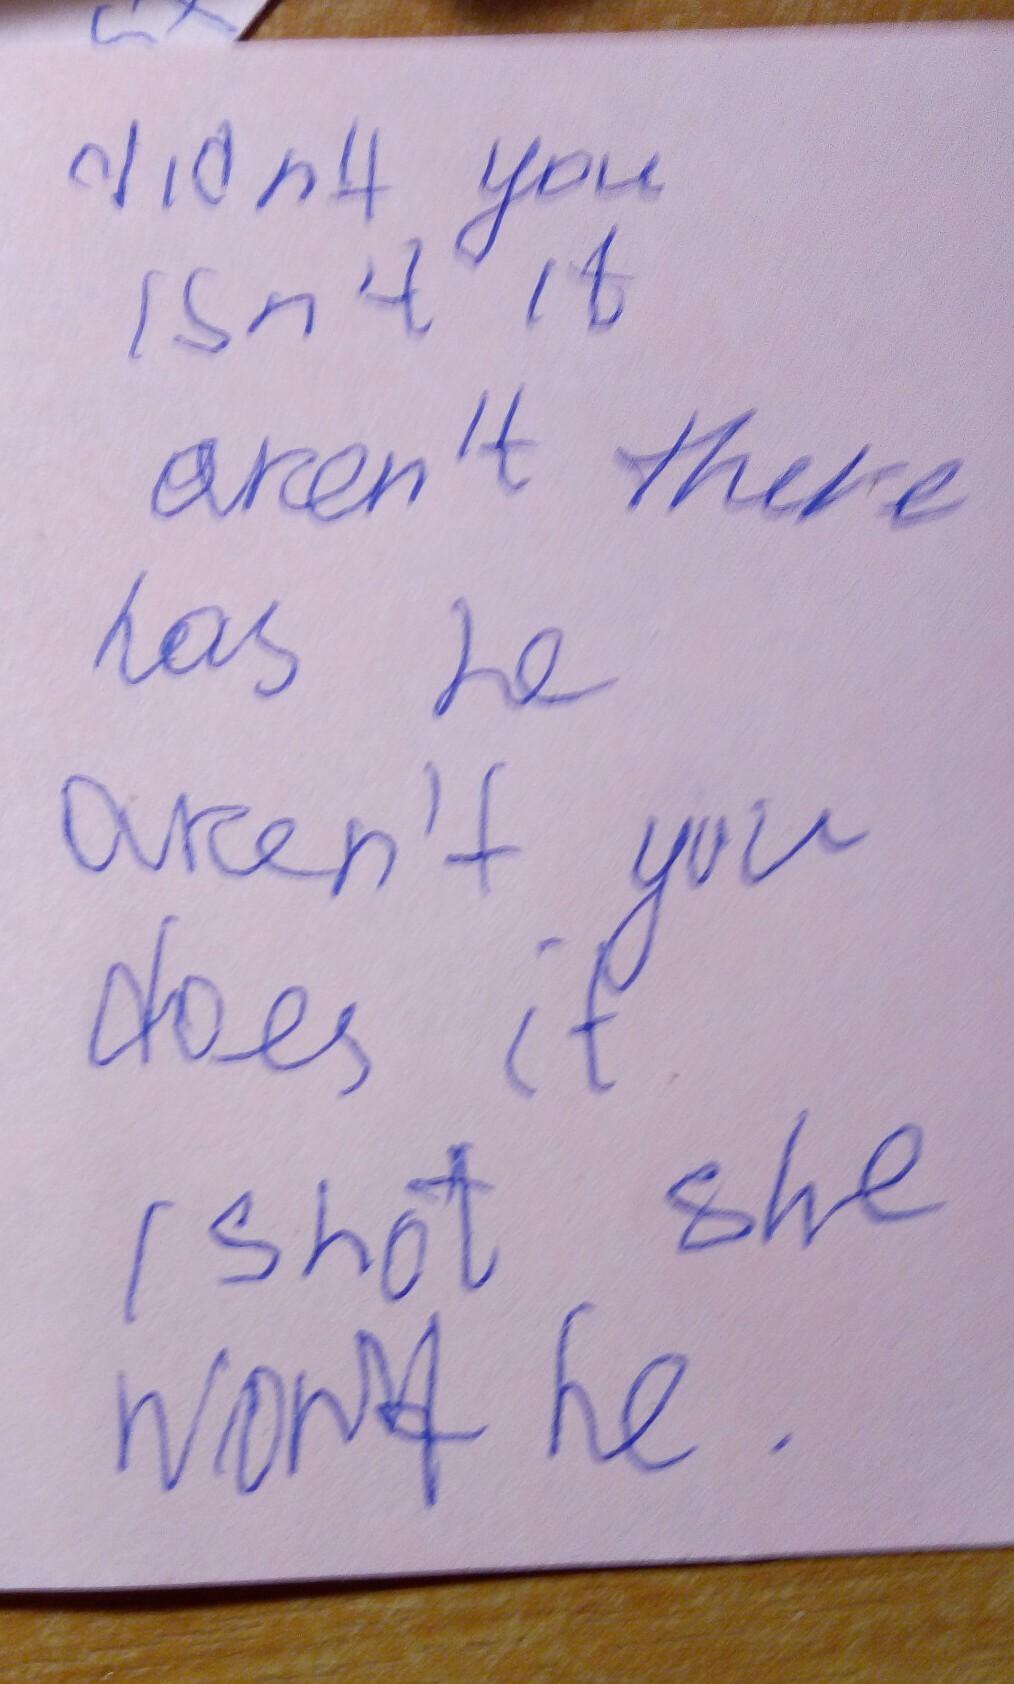 didn't you
isn't it
aren't there
has he
aren't you
does it
isnot she
won't he.